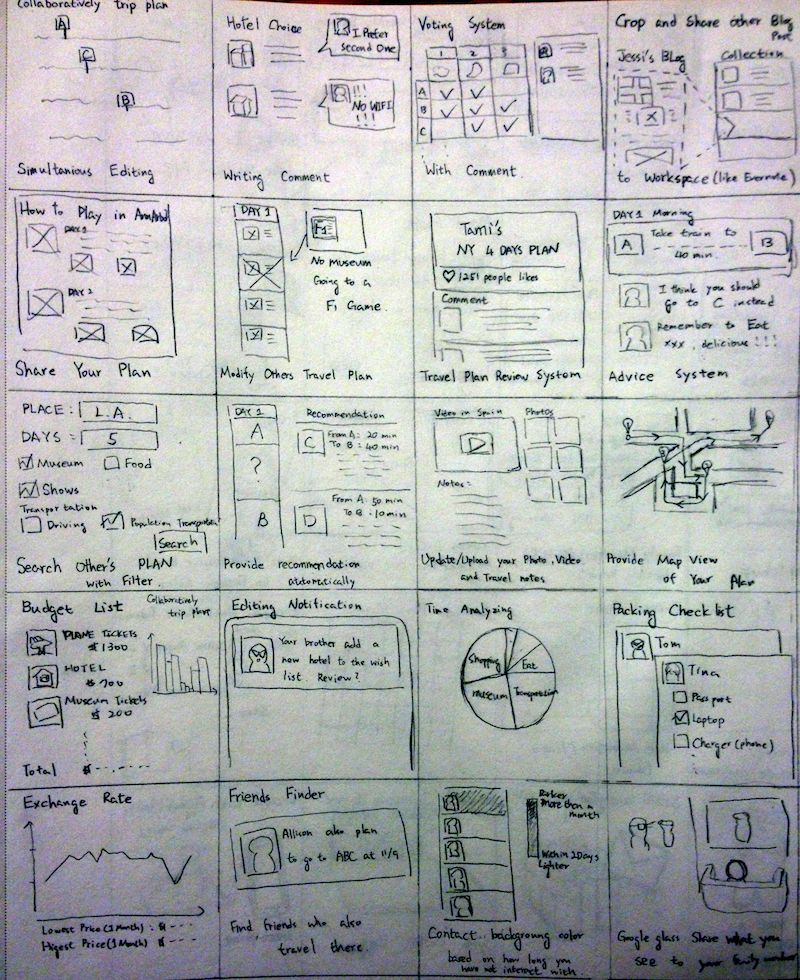 Collaboratively trip plan
A
C
B
Simultanious Editing
Hotel Choice
I Prefer
second One
!!!
No WIFI
!!!
Writing Comment
Voting System
1 2 3
A
B
C
With Comment.
Crop and Share other Blog
Post
Jessi's Blog
Collection
to Workspace (like Evernote)
How to Play in AnnArbor
DAY 1
DAY 2
Share Your Plan
DAY 1
F1
No Museum
Going to a
F1 Game.
Modify Others Travel Plan
Tami's
NY 4 DAYS PLAN
1251 people likes
Comment
Travel Plan Review System
DAY 1 Morning
A
Take train to
B
40 min.
I think you should
go to C instead
Remember to Eat
xxx, delicious!!!
Advice System
PLACE: L.A.
DAYS: 5
Museum
Food
Shows
Transportation
Driving
Population Transportation
Search
Search Other's PLAN
with Filter.
DAY 1
A
?
B
Recommendation
C
From A: 20 min
To B: 40 min
D
From A: 50 min
To B: 10 min
Provide recommendation
automatically
Video in Spain
Photos
Notes:
Update/Upload your Photo, Video
and Travel notes
Provide Map View
of Your Plan
Budget List
Collaboratively
trip plans
PLANE TICKETS
$1300
HOTEL
$700
Museum Tickets
$ 200
Total $
Editing Notification
Your brother add a
new hotel to the wish
list. Review?
Time Analyzing
Shopping
Eat
museum
Transportation
Packing Check list
Tom
Tina
Passport
Laptop
Charger (phone)
Exchange Rate
Lowest Price (1 Month) : $ ---
Higest Price (1 Month) $ ---
Friends Finder
Allison also plan
to go to ABC at 11/9
Find friends who also
travel there.
More than a
month
Within 2 Days
Lighter
Contact.. backgroung color
based on how long you
have not interact with
Google glass Share what you
see to your family member